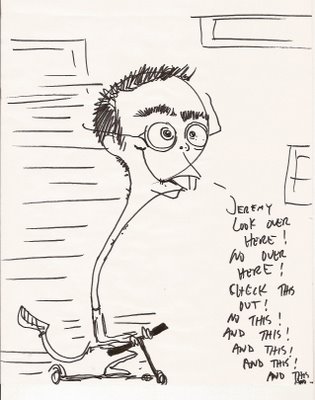 JEREMY
LOOK OVER
HERE!
NO OVER
HERE!
CHECK THIS
OUT!
NO THIS!
AND THIS!
AND THIS!
AND THIS!
AND THIS